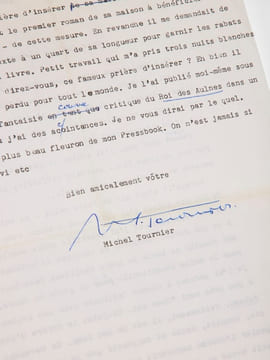 rière d'insérer
t le premier roman de sa maison à bénéficier
- de cette mesure. En revanche il me demandait de
exte à un quart de sa longueur pour garnir les rabats
livre. Petit travail qui m'a pris trois nuits blanches
direz-vous, ce fameux prière d'insérer ? Eh bien il
perdu pour tout le monde. Je l'ai publié moi-même sous
fantaisie en tant que comme critique du Roi des Aulnes dans un
ù j'ai des accointances. Je ne vous dirai par le quel.
plus beau fleuron de mon Pressbook. On n'est jamais si
vi etc
Bien amicalement vôtre
M. Tournier
Michel Tournier